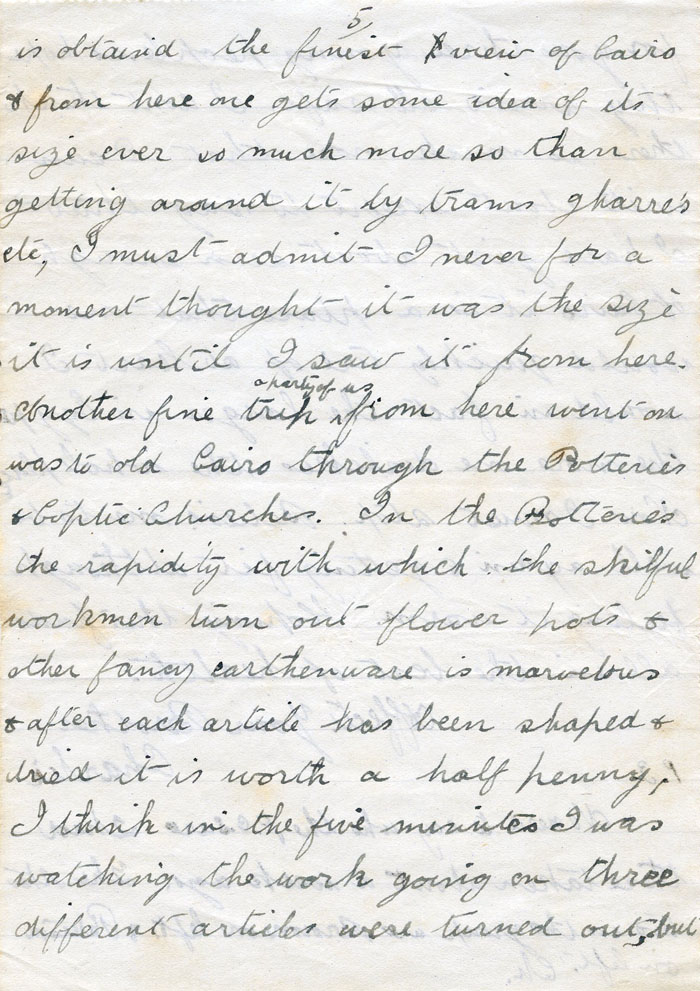 5
is obtaind the finest view of Cairo
& from here one gets some idea of its
size ever so much more so than
getting around it by trams gharre's
etc, I must admit I never for a
moment thought it was the size
it is until I saw it from here.
a party of us
Another fine trip from here went on
was to old Cairo through the Potteries
& Coptic Churches. In the Potteries
the rapidity with which the skilful
workmen turn out flower pots &
other fancy earthenware is marvelous
& after each article has been shaped &
dried it is worth a half penny,
I think in the five minutes I was
watching the work going on three
different articles were turned out, but